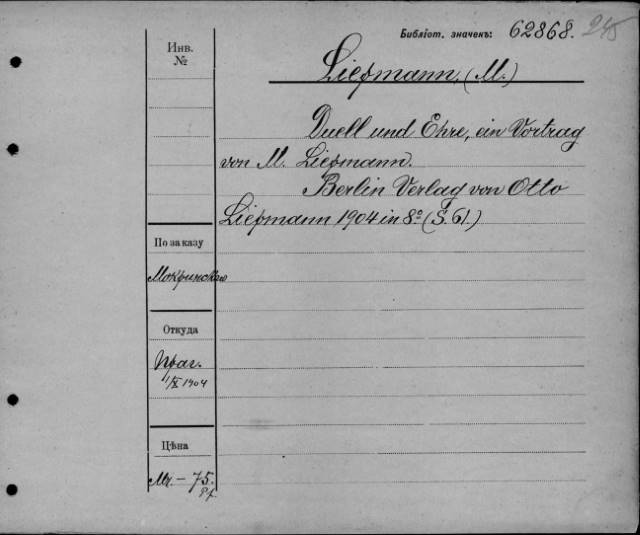 Библіот. значекъ: 62868. 245
Инв.
№
Liepmann, (M.)
Duell und Ehre, ein Vortrag
von M. Liepmann.
Berlin Verlag von Otto
Liepmann 1904 in 8º (S. 61.)
По заказу
Мокринскаго
Откуда
1/X 1904
Цѣна
Mк. – 75.